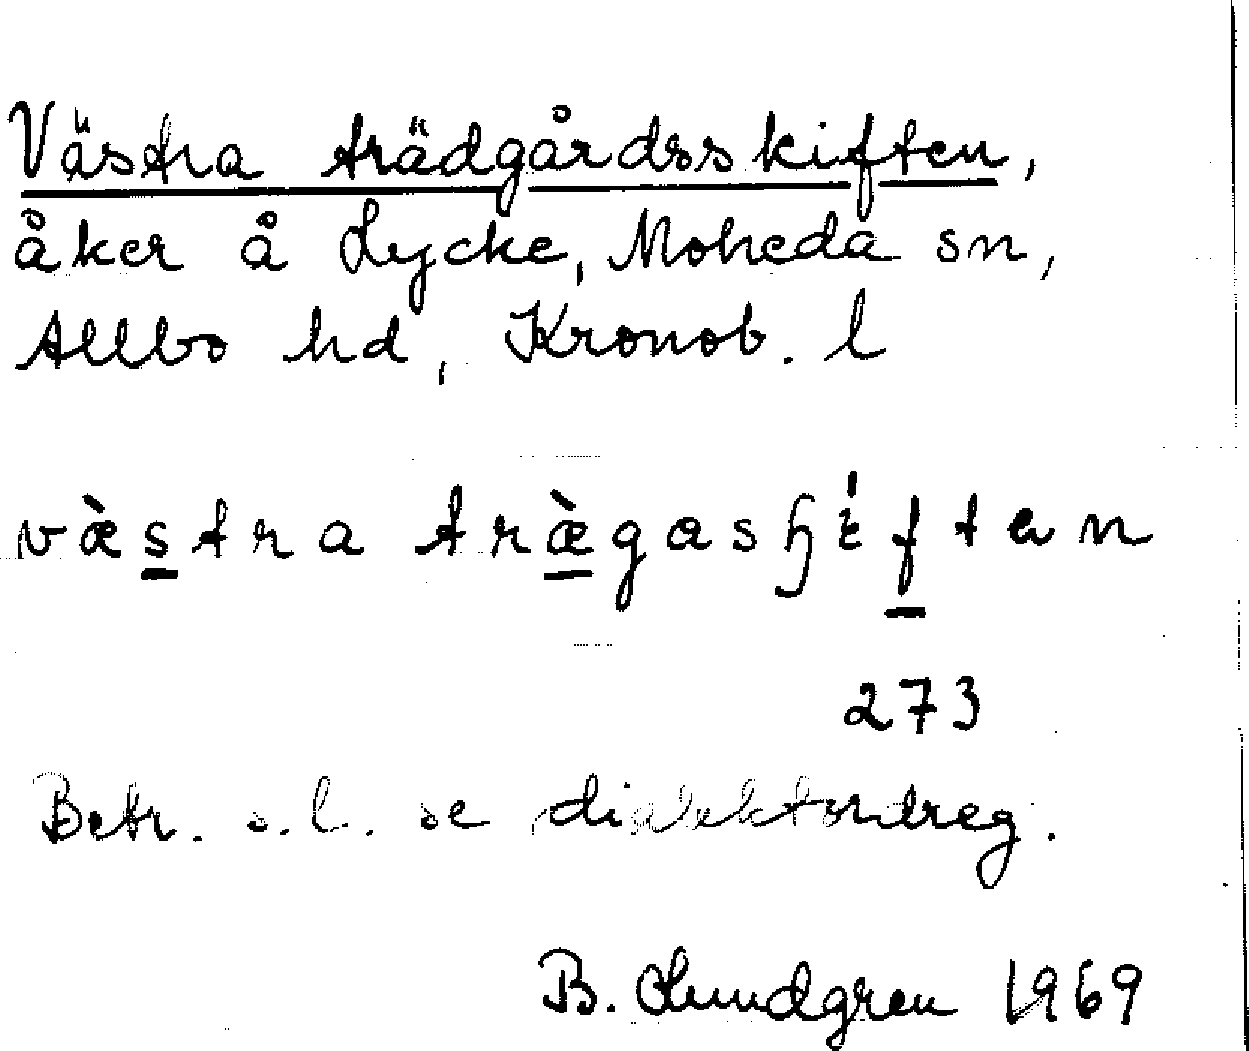 Västra trädgårdsskiften,
åker å Lycke, Moheda sn,
Allbo hd, Kronob. l
væ̀stra træ̀gasɧiften
273
Betr. s.l. se dialektordreg.
B. Lundgren 1969